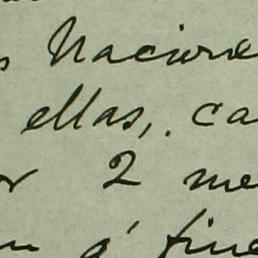 s Nacione
ellas, ca
or 2 me
ó fine